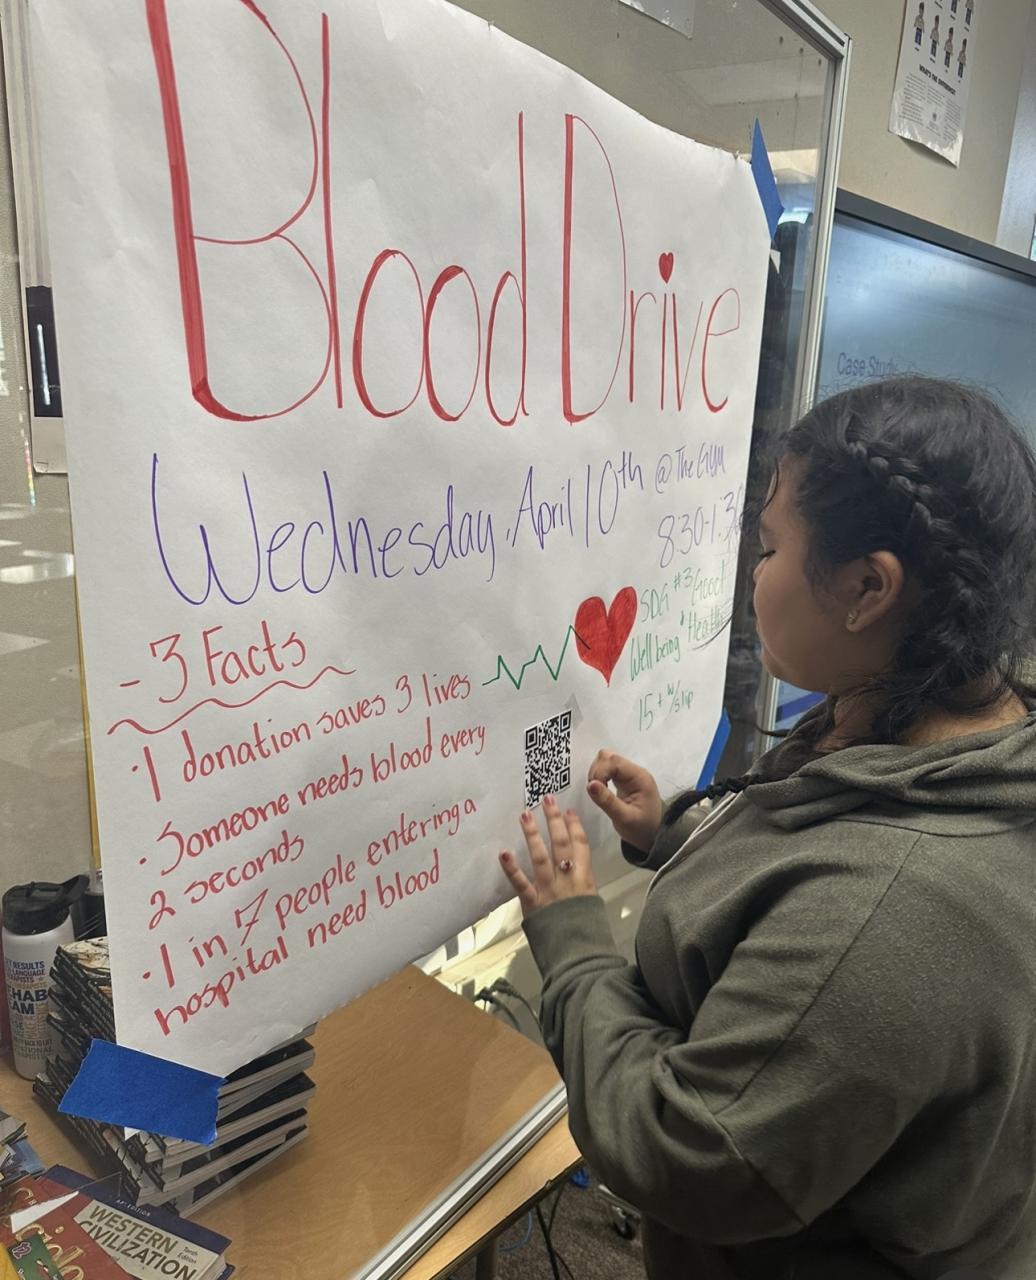 Blood Drive
Wednesday, April 10th @ The GYM
8:30-1:30
SDG #3 Good
Well being & Health
15+ w/slip
- 3 Facts
· 1 donation saves 3 lives
· Someone needs blood every
2 seconds
· 1 in 7 people entering a
hospital need blood
Case Study
WHAT'S THE DIFFERENCE?
WESTERN
CIVILIZATION
Tenth
Edition